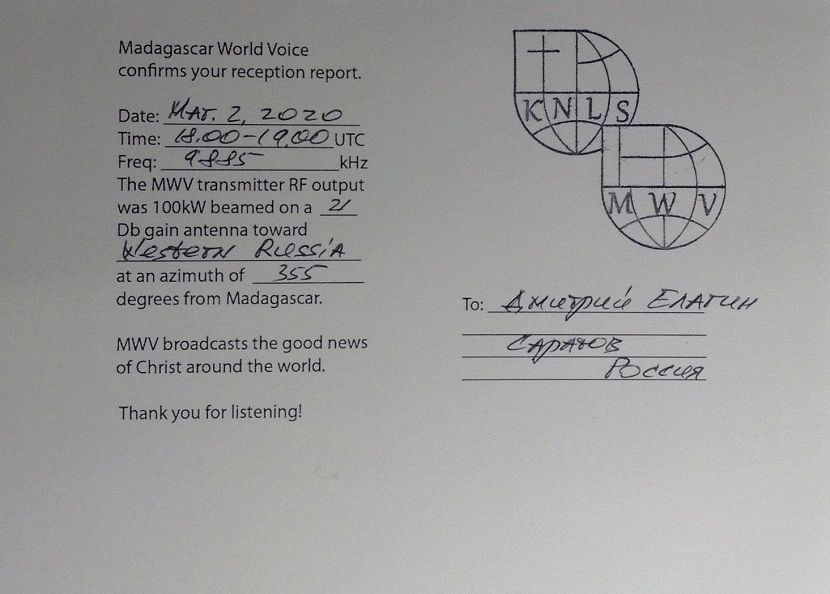 Madagascar World Voice
confirms your reception report.
Date: Mar. 2, 2020
Time: 18.00-19.00 UTC
Freq: 9885 kHz
The MWV transmitter RF output
was 100kW beamed on a 21
Db gain antenna toward
Western Russia
at an azimuth of 355
degrees from Madagascar.
MWV broadcasts the good news
of Christ around the world.
Thank you for listening!
KNLS
MWV
To: Дмитрий Елагин
Саратов
Россия